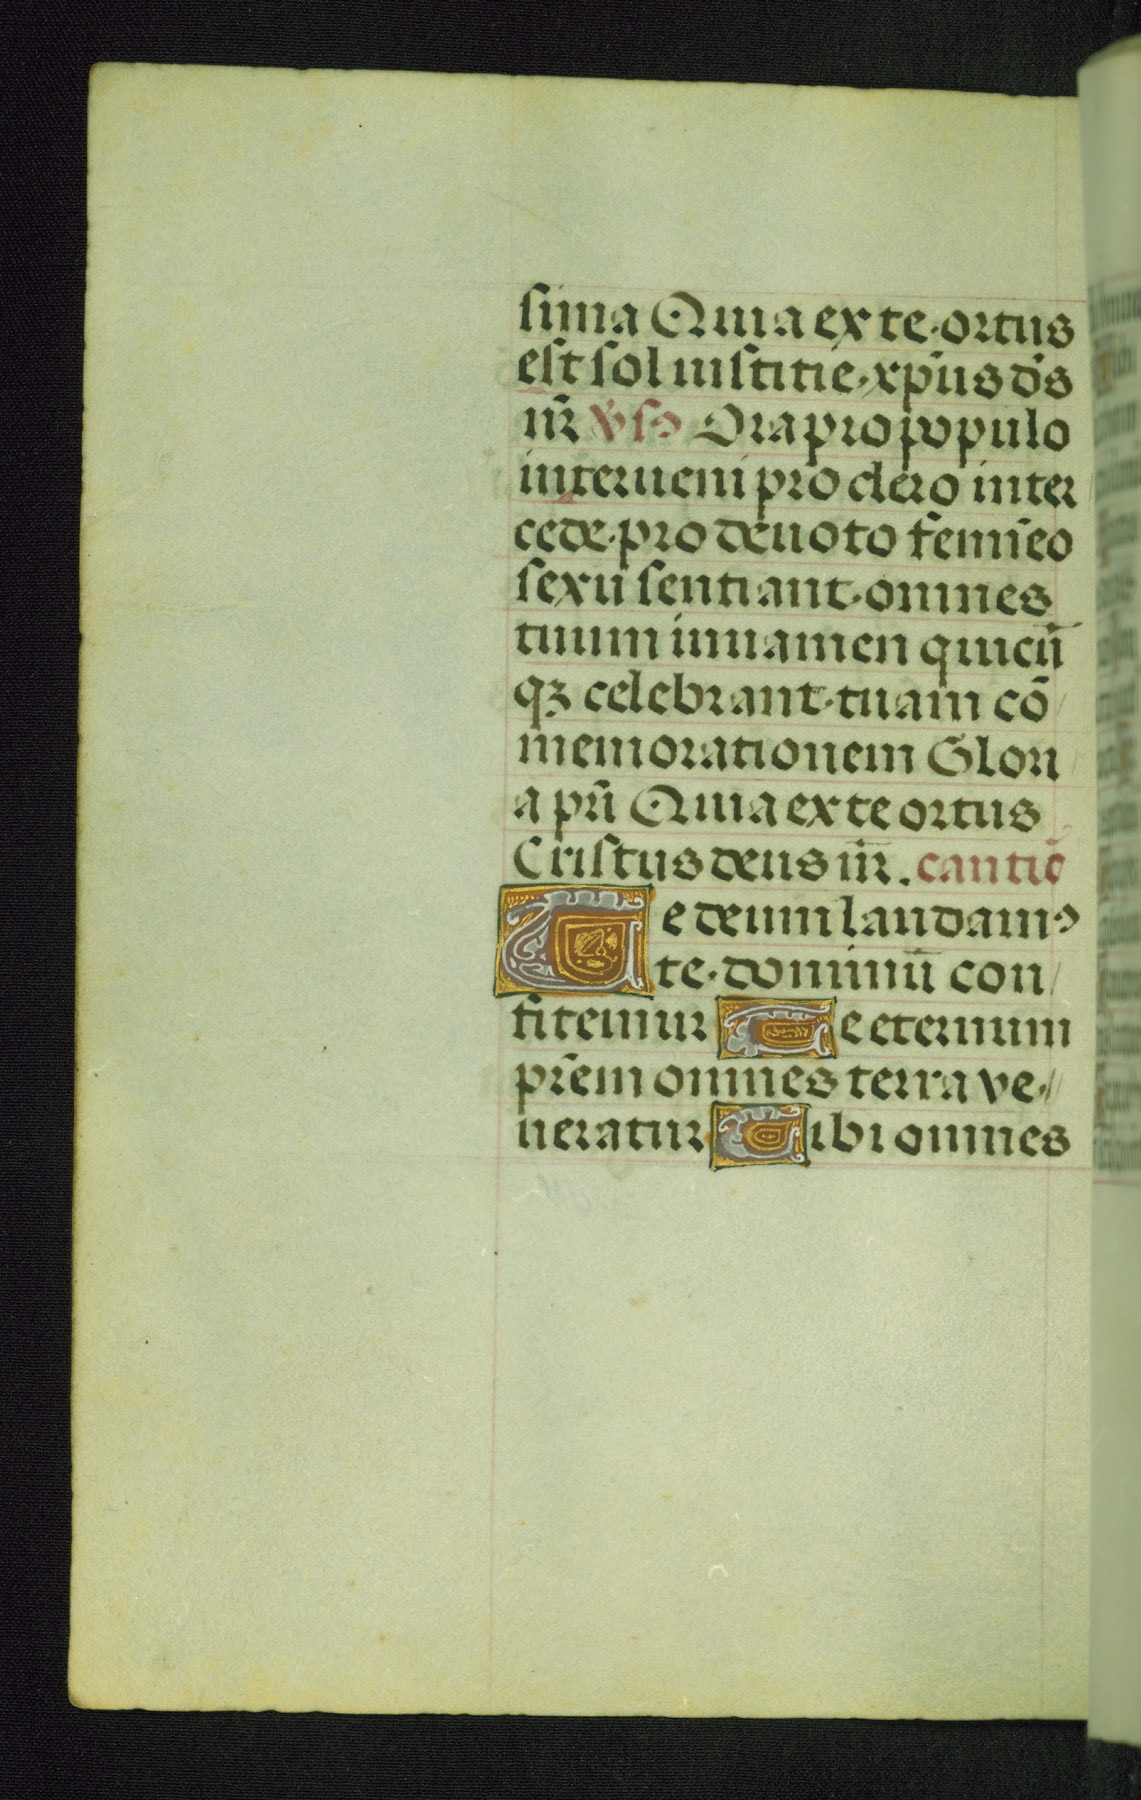 sima Quia ex te·ortus
est sol iustitie·xp̄us dn̄s
nr̄ v̄so Ora pro populo
interueni pro clero inter
cede·pro deuoto femīeo
sexu sentiant·omnes
tuum iuuamen quicū
qꝫ celebrant·tuam cō/
memorationem Glori
a pr̄i Quia ex te ortus
Cristus deus nr̄. cantic̄
Te deum laudamꝰ
te·dominum con/
fitemur Te eternum
pr̄em omnes terra ve·//
neratur Tibi omnes